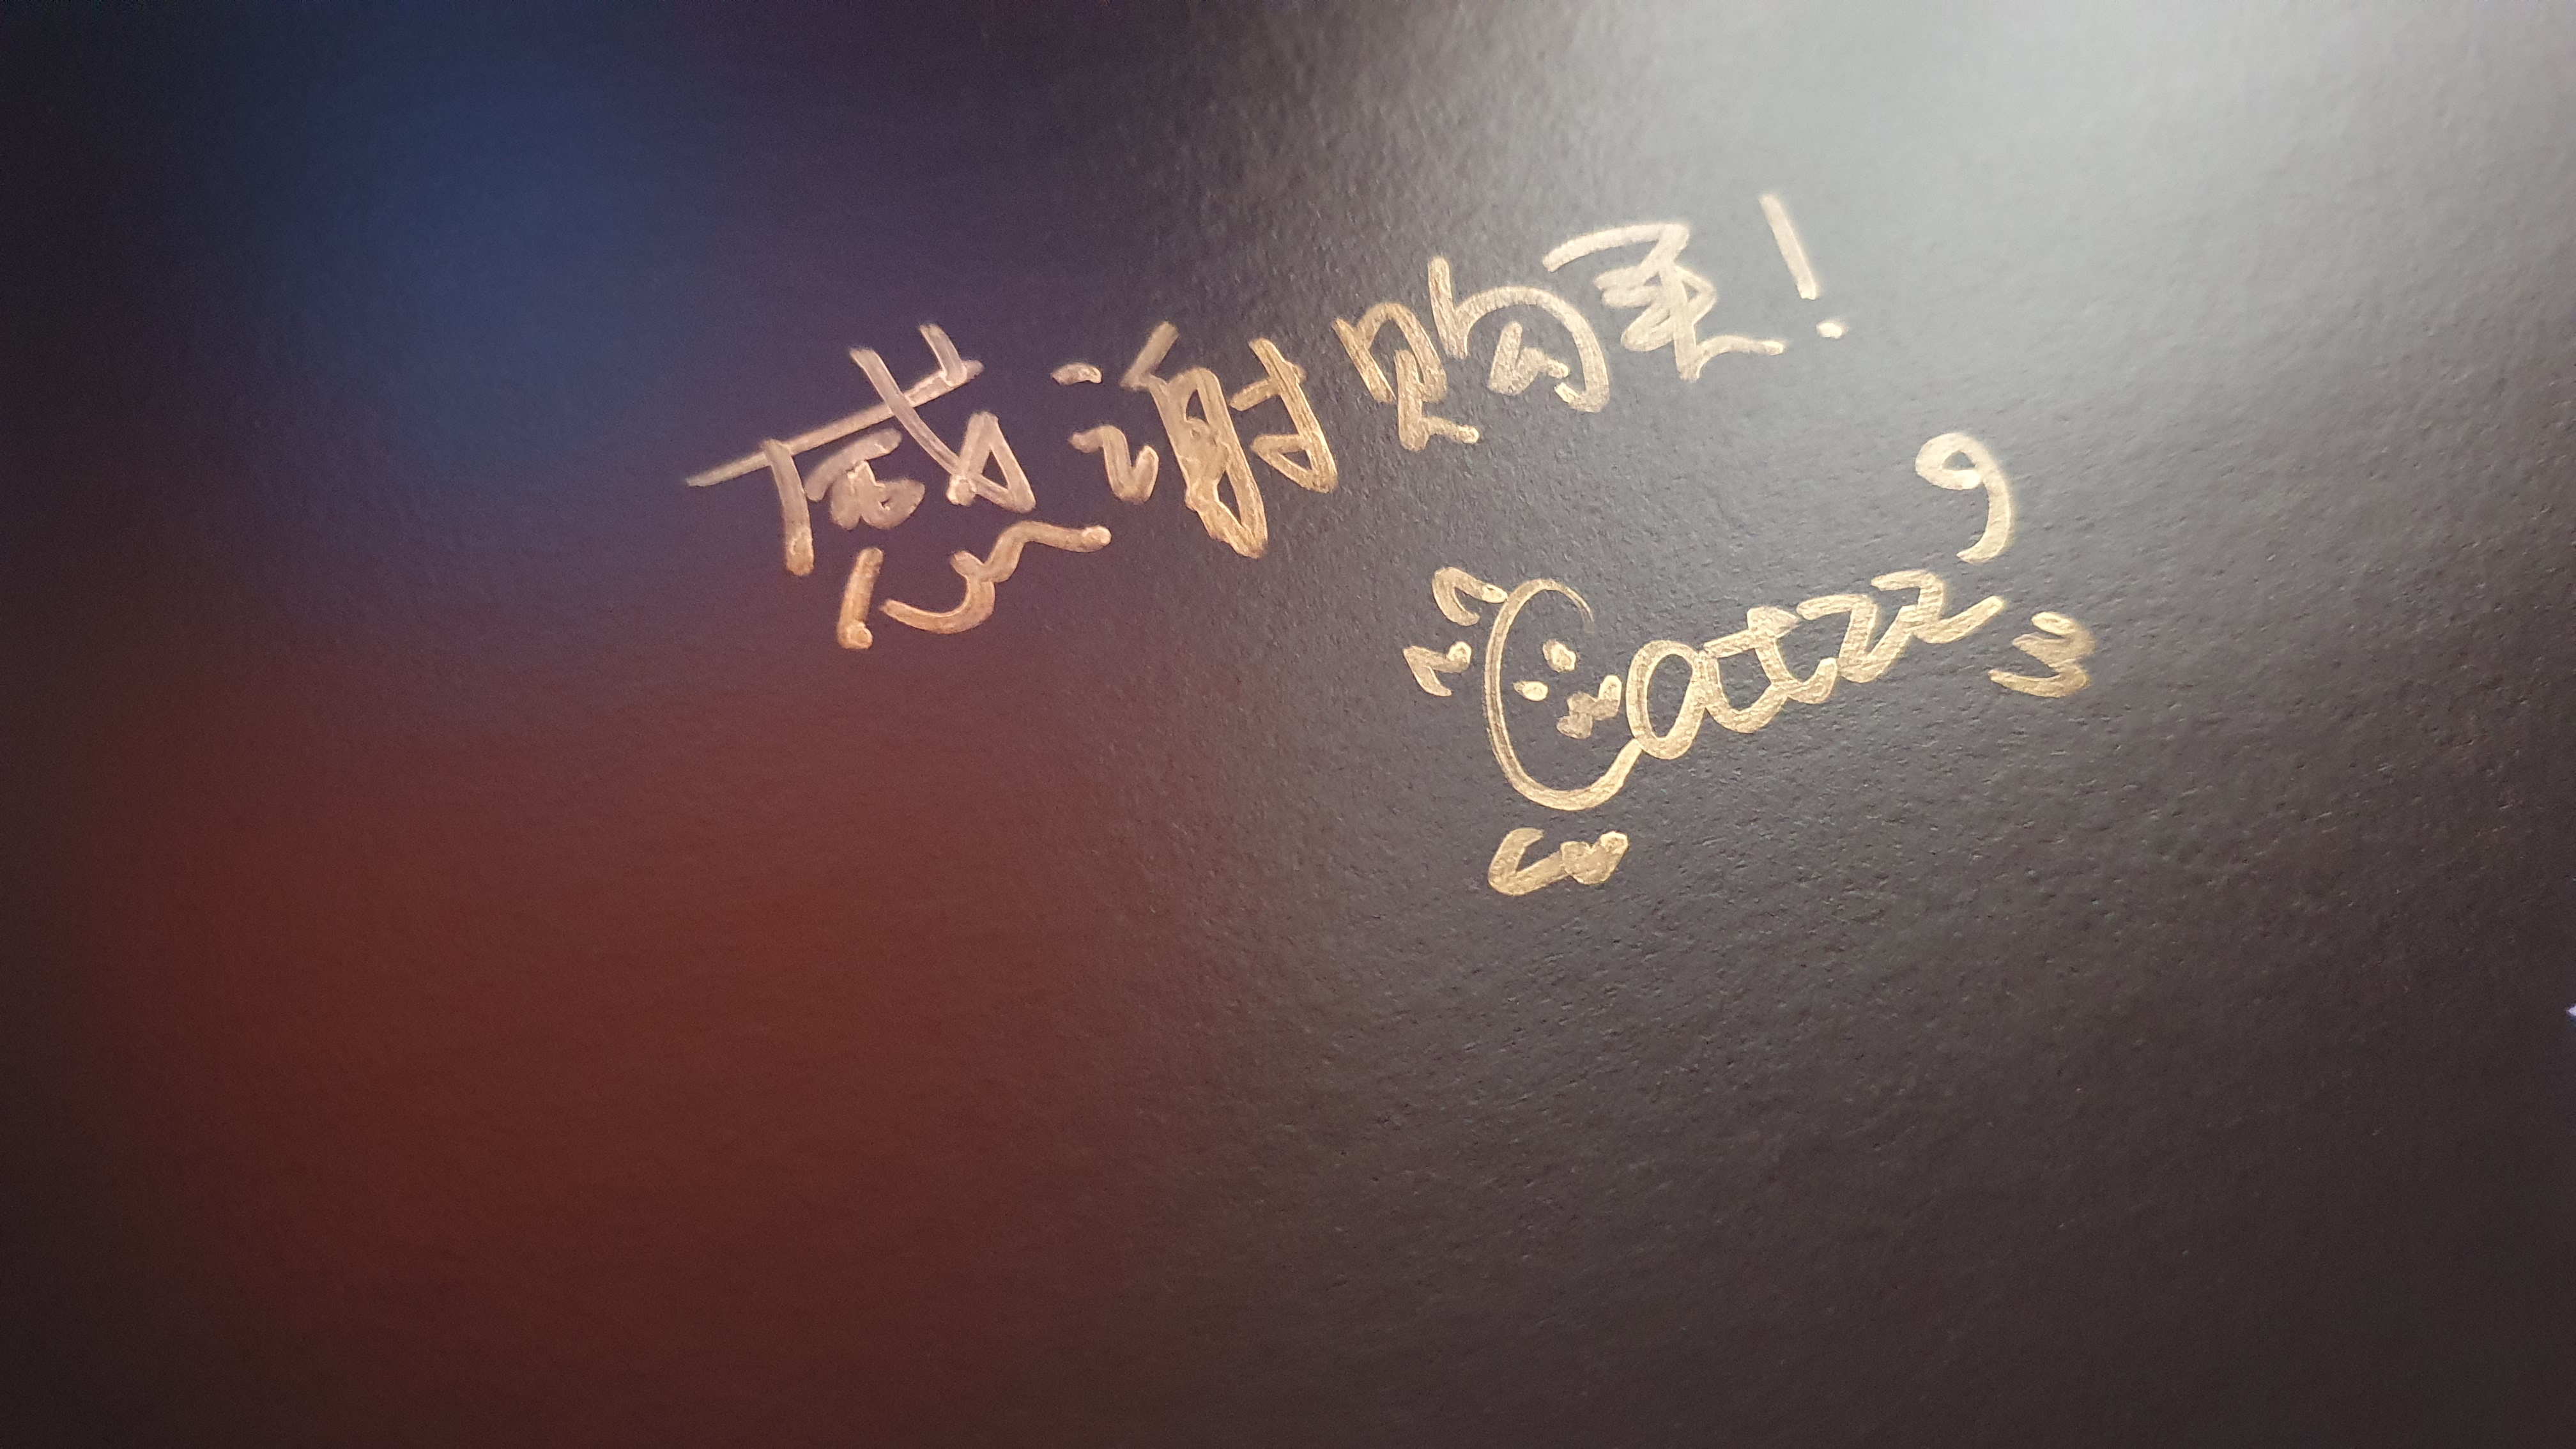 感谢购买!
Catzz